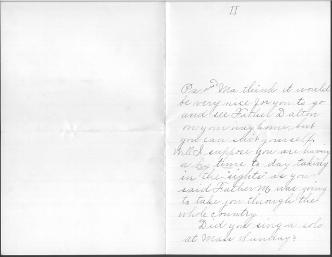 II
Pa and Ma think it would
be very nice for you to go
and see Father Dalton
on your way home, but
you can suit yourself.
Well I suppose you are having
a big time to day taking
in the "sights" as you
said Father M. was going
to take you through the
whole country.
Did you sing a solo
at Mass Sunday?